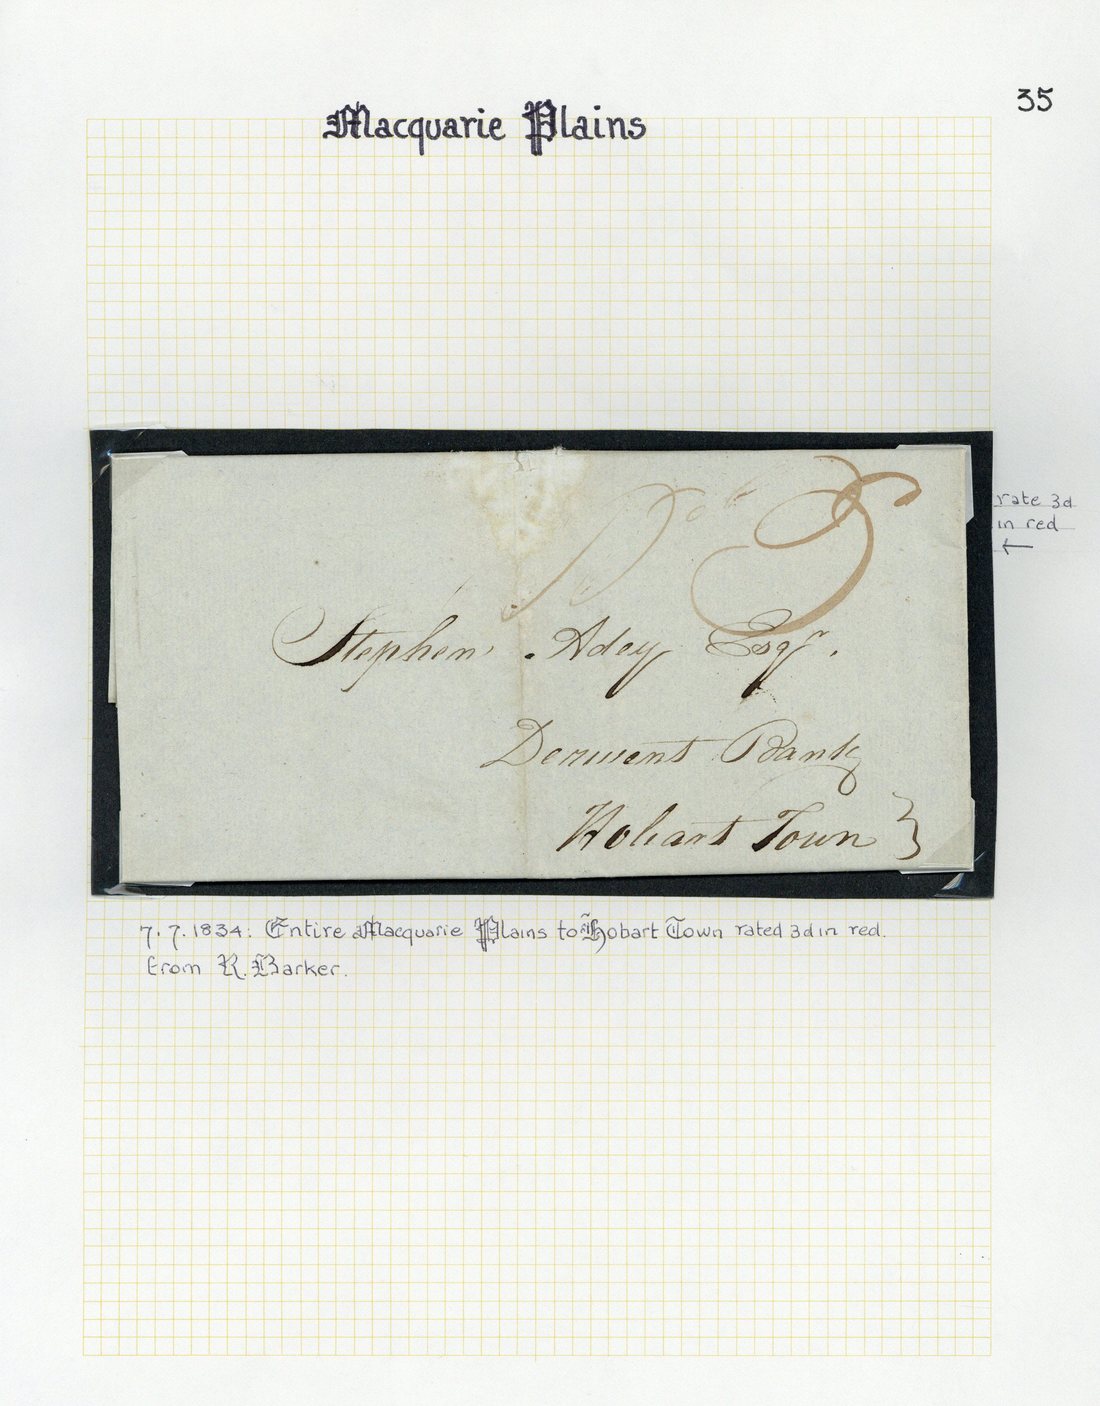 35
Macquarie Plains
rate 3d
in red
3
Stephen Adey Esqr.
Derwent Bank
Hobart Town }
7.7.1834: Entire Macquarie Plains to Hobart Town rated 3d in red.
from R. Barker.